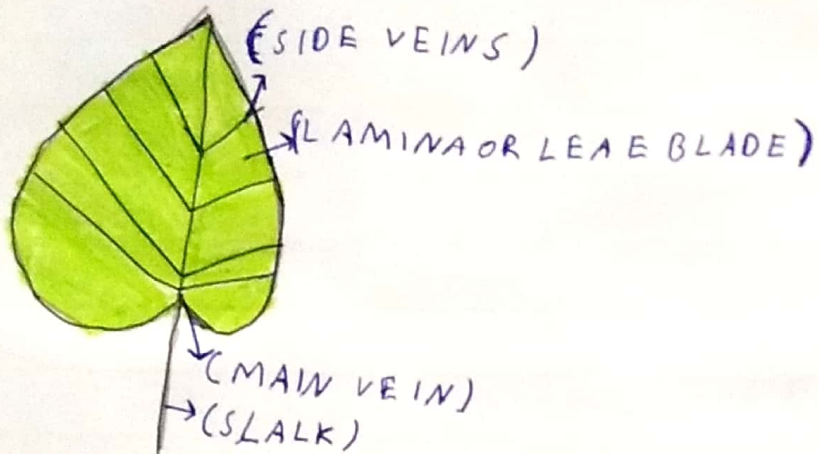 (SIDE VEINS)
(LAMINA OR LEAE BLADE)
(MAIN VEIN)
(SLALK)